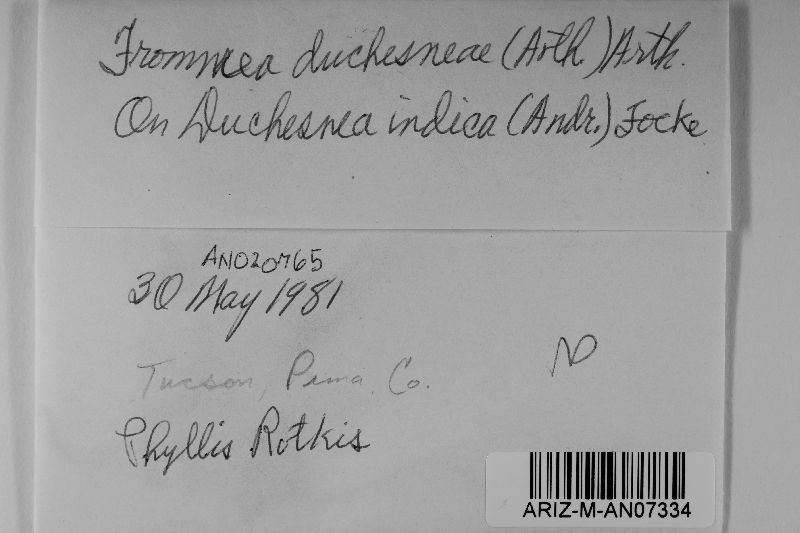 Frommea duchesneae (Arth.) Arth.
On Duchesnea indica (Andr.) Focke
AN020765
30 May 1981
Tucson, Pima Co.
Phyllis Rotkis
ARIZ-M-AN07334